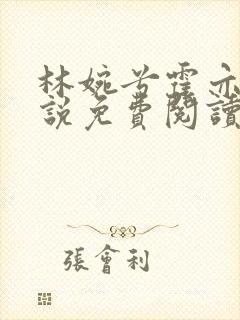 林婉兮霍亦
說免費閱讀
張會利